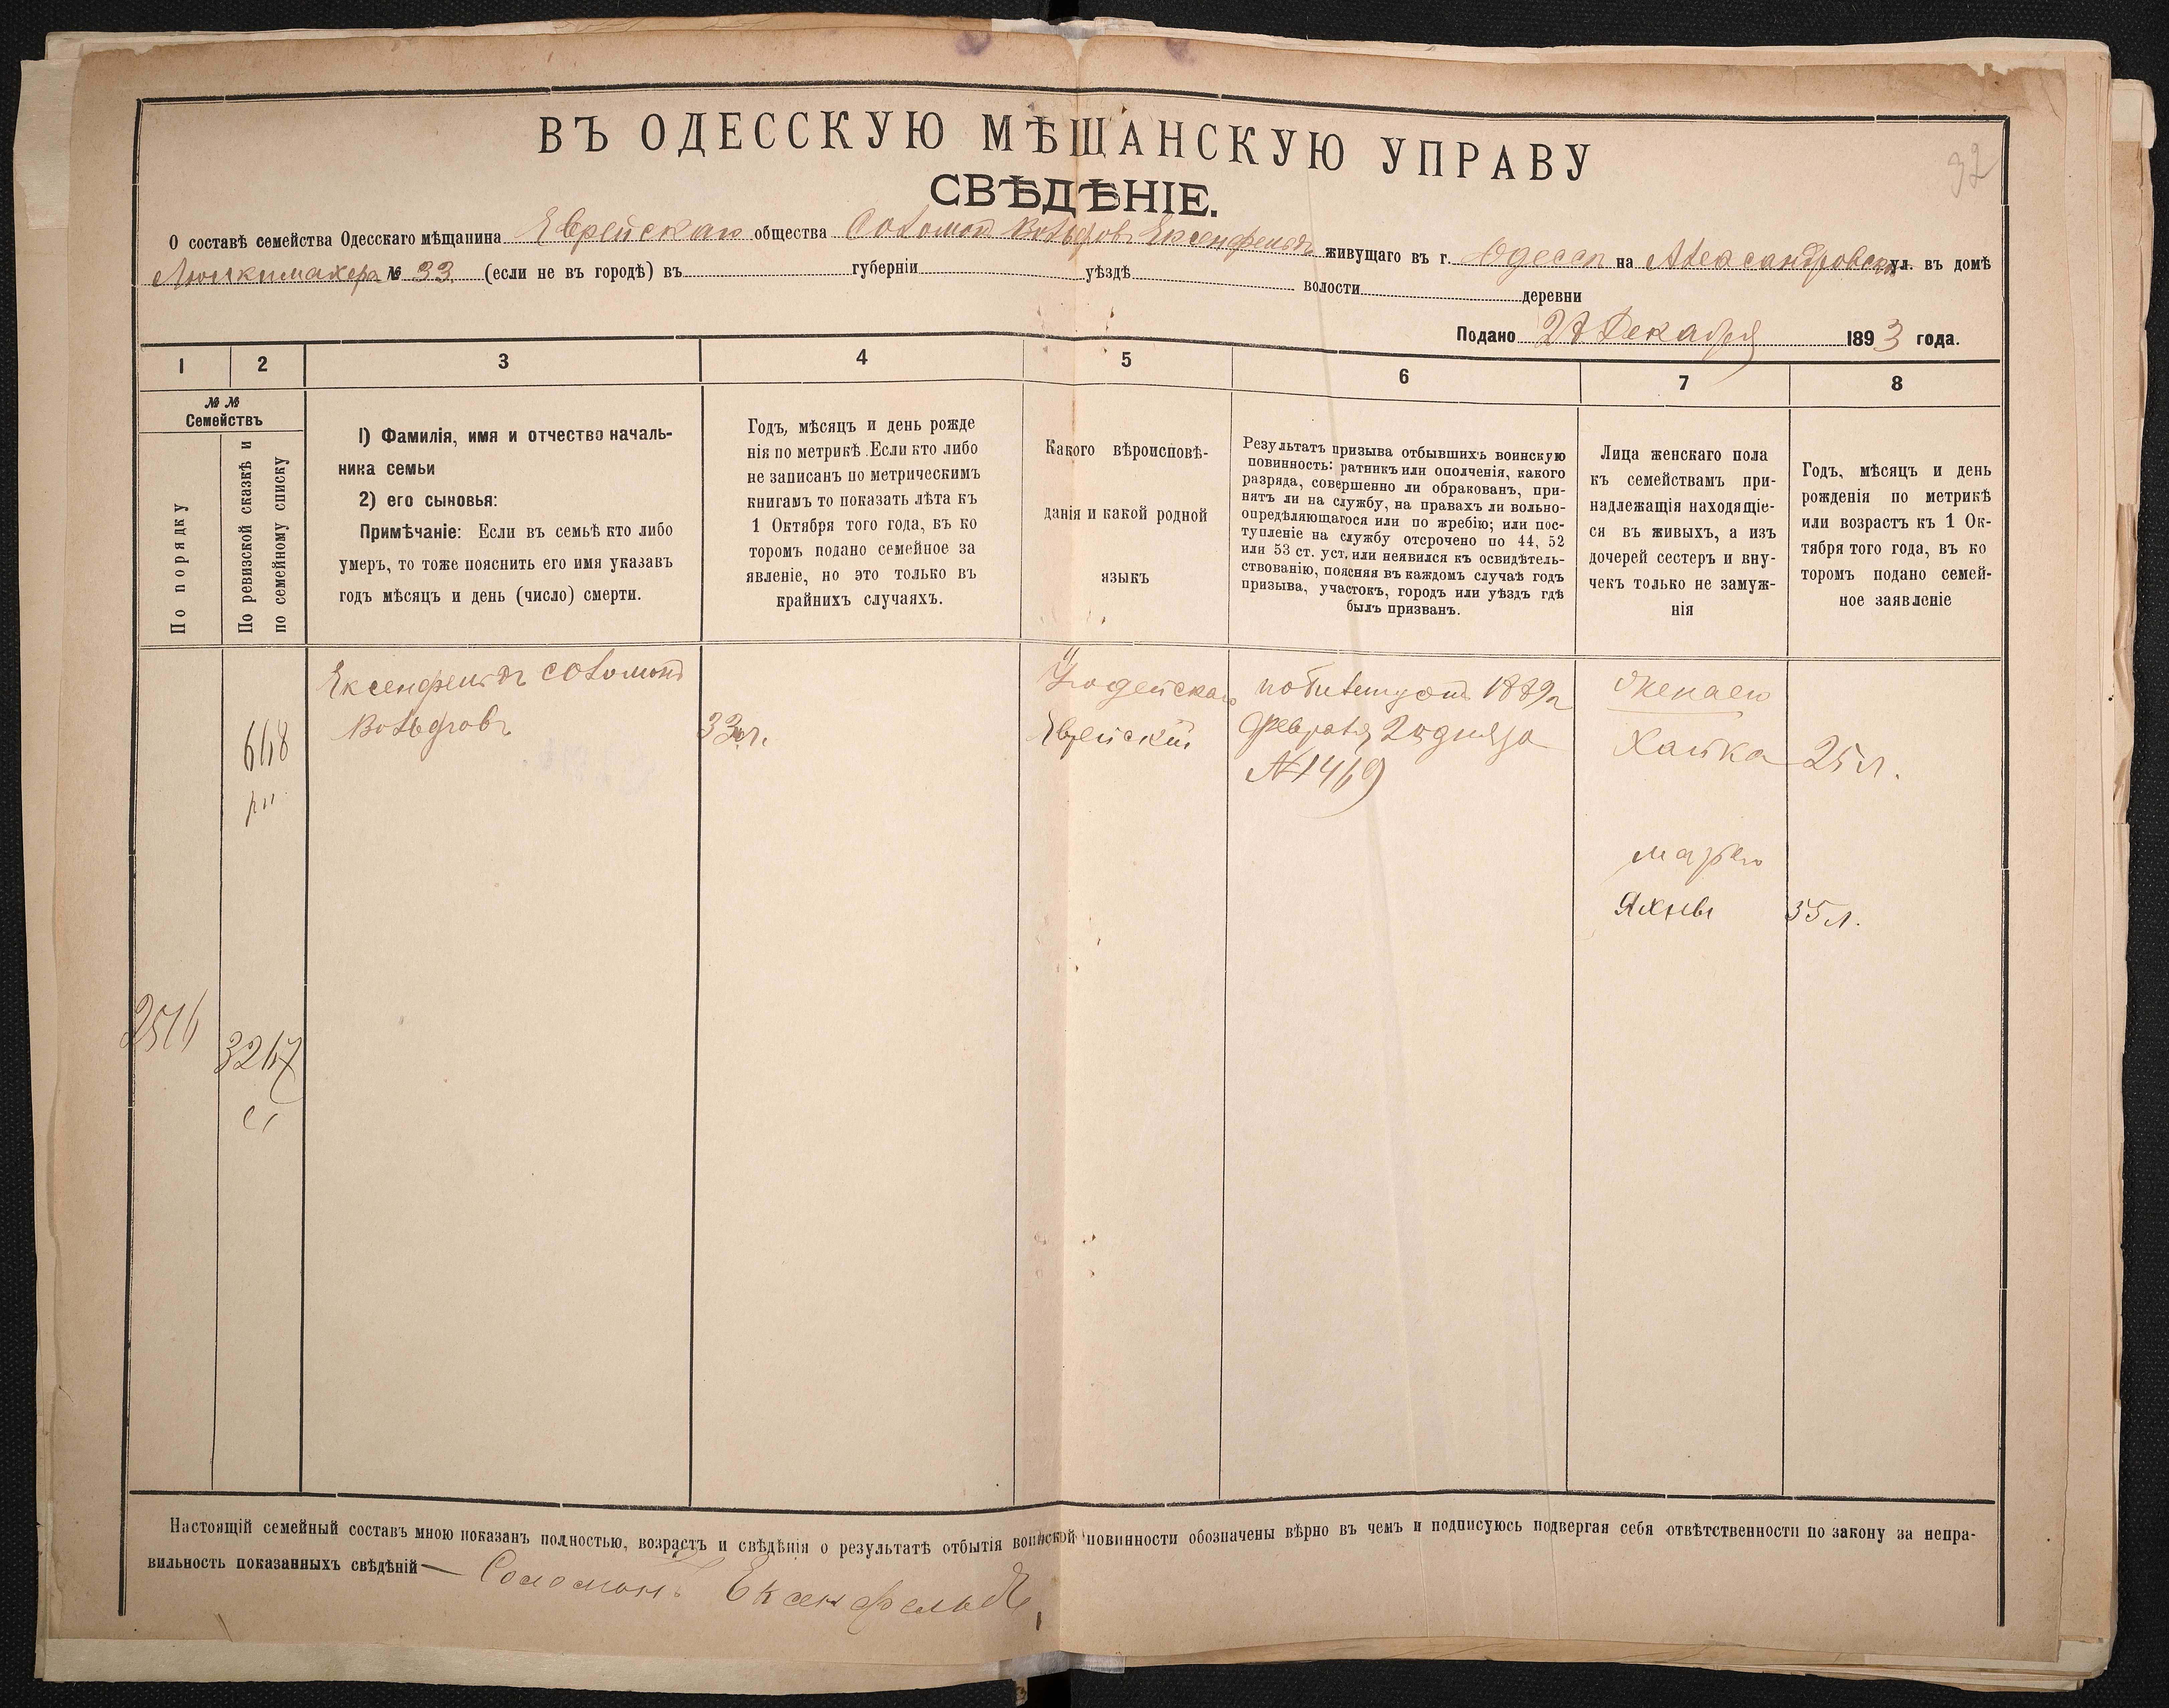 32
ВЪ ОДЕССКУЮ МѢЩАНСКУЮ УПРАВУ
СВѢДѢНІЕ.
О составѣ семейства Одесскаго мѣщанина Еврейскаго общества Соломонъ Вольфовъ Ексенфельдъ живущаго въ г. Одессѣ на Александровск ул. въ домѣ
№ 33 (если не въ городѣ) въ губерніи уѣздѣ волости деревни
Подано 27 Декабря 1893 года.
1 2 3 4 5 6 7 8
№ №
Семействъ
По порядку
По ревизской сказкѣ и
по семейному списку
1) Фамилія, имя и отчество началь-
ника семьи
2) его сыновья:
Примѣчаніе: Если въ семьѣ кто либо
умеръ, то тоже пояснить его имя указавъ
годъ мѣсяцъ и день (число) смерти.
Годъ, мѣсяцъ и день рожде
нія по метрикѣ. Если кто либо
не записанъ по метрическимъ
книгамъ то показать лѣта къ
1 Октября того года, въ ко
торомъ подано семейное за
явленіе, но это только въ
крайнихъ случаяхъ.
Какого вѣроисповѣ-
данія и какой родной
языкъ
Результатъ призыва отбывшихъ воинскую
повинность: ратникъ или ополченія, какого
разряда, совершенно ли обракованъ, при-
нятъ ли на службу, на правахъ ли вольно-
опредѣляющагося или по жребію; или пос-
тупленіе на службу отсрочено по 44, 52
или 53 ст. уст. или неявился къ освидѣтель-
ствованію, поясняя въ каждомъ случаѣ годъ
призыва, участокъ, городъ или уѣздъ гдѣ
былъ призванъ.
Лица женскаго пола
къ семействамъ при-
надлежащія находящіе-
ся въ живыхъ, а изъ
дочерей сестеръ и вну-
чекъ только не замуж-
нія
Годъ, мѣсяцъ и день
рожденія по метрикѣ
или возрастъ къ 1 Ок-
тября того года, въ ко
торомъ подано семей-
ное заявленіе
Ексенфельдъ Соломонъ
Вольфовъ
33 л.
Іудейскаго
Еврейскій
по билету отъ 1889 г
февраля 20 дня за
№ 1469
Хайка 25 л.
Яхны 55 л.
648
3267
Настоящій семейный составъ мною показанъ полностью, возрастъ и свѣдѣнія о результатѣ отбытія воинской повинности обозначены вѣрно въ чемъ и подписуюсь подвергая себя отвѣтственности по закону за непра-
вильность показанныхъ свѣдѣній — Соломонъ Ексенфельдъ